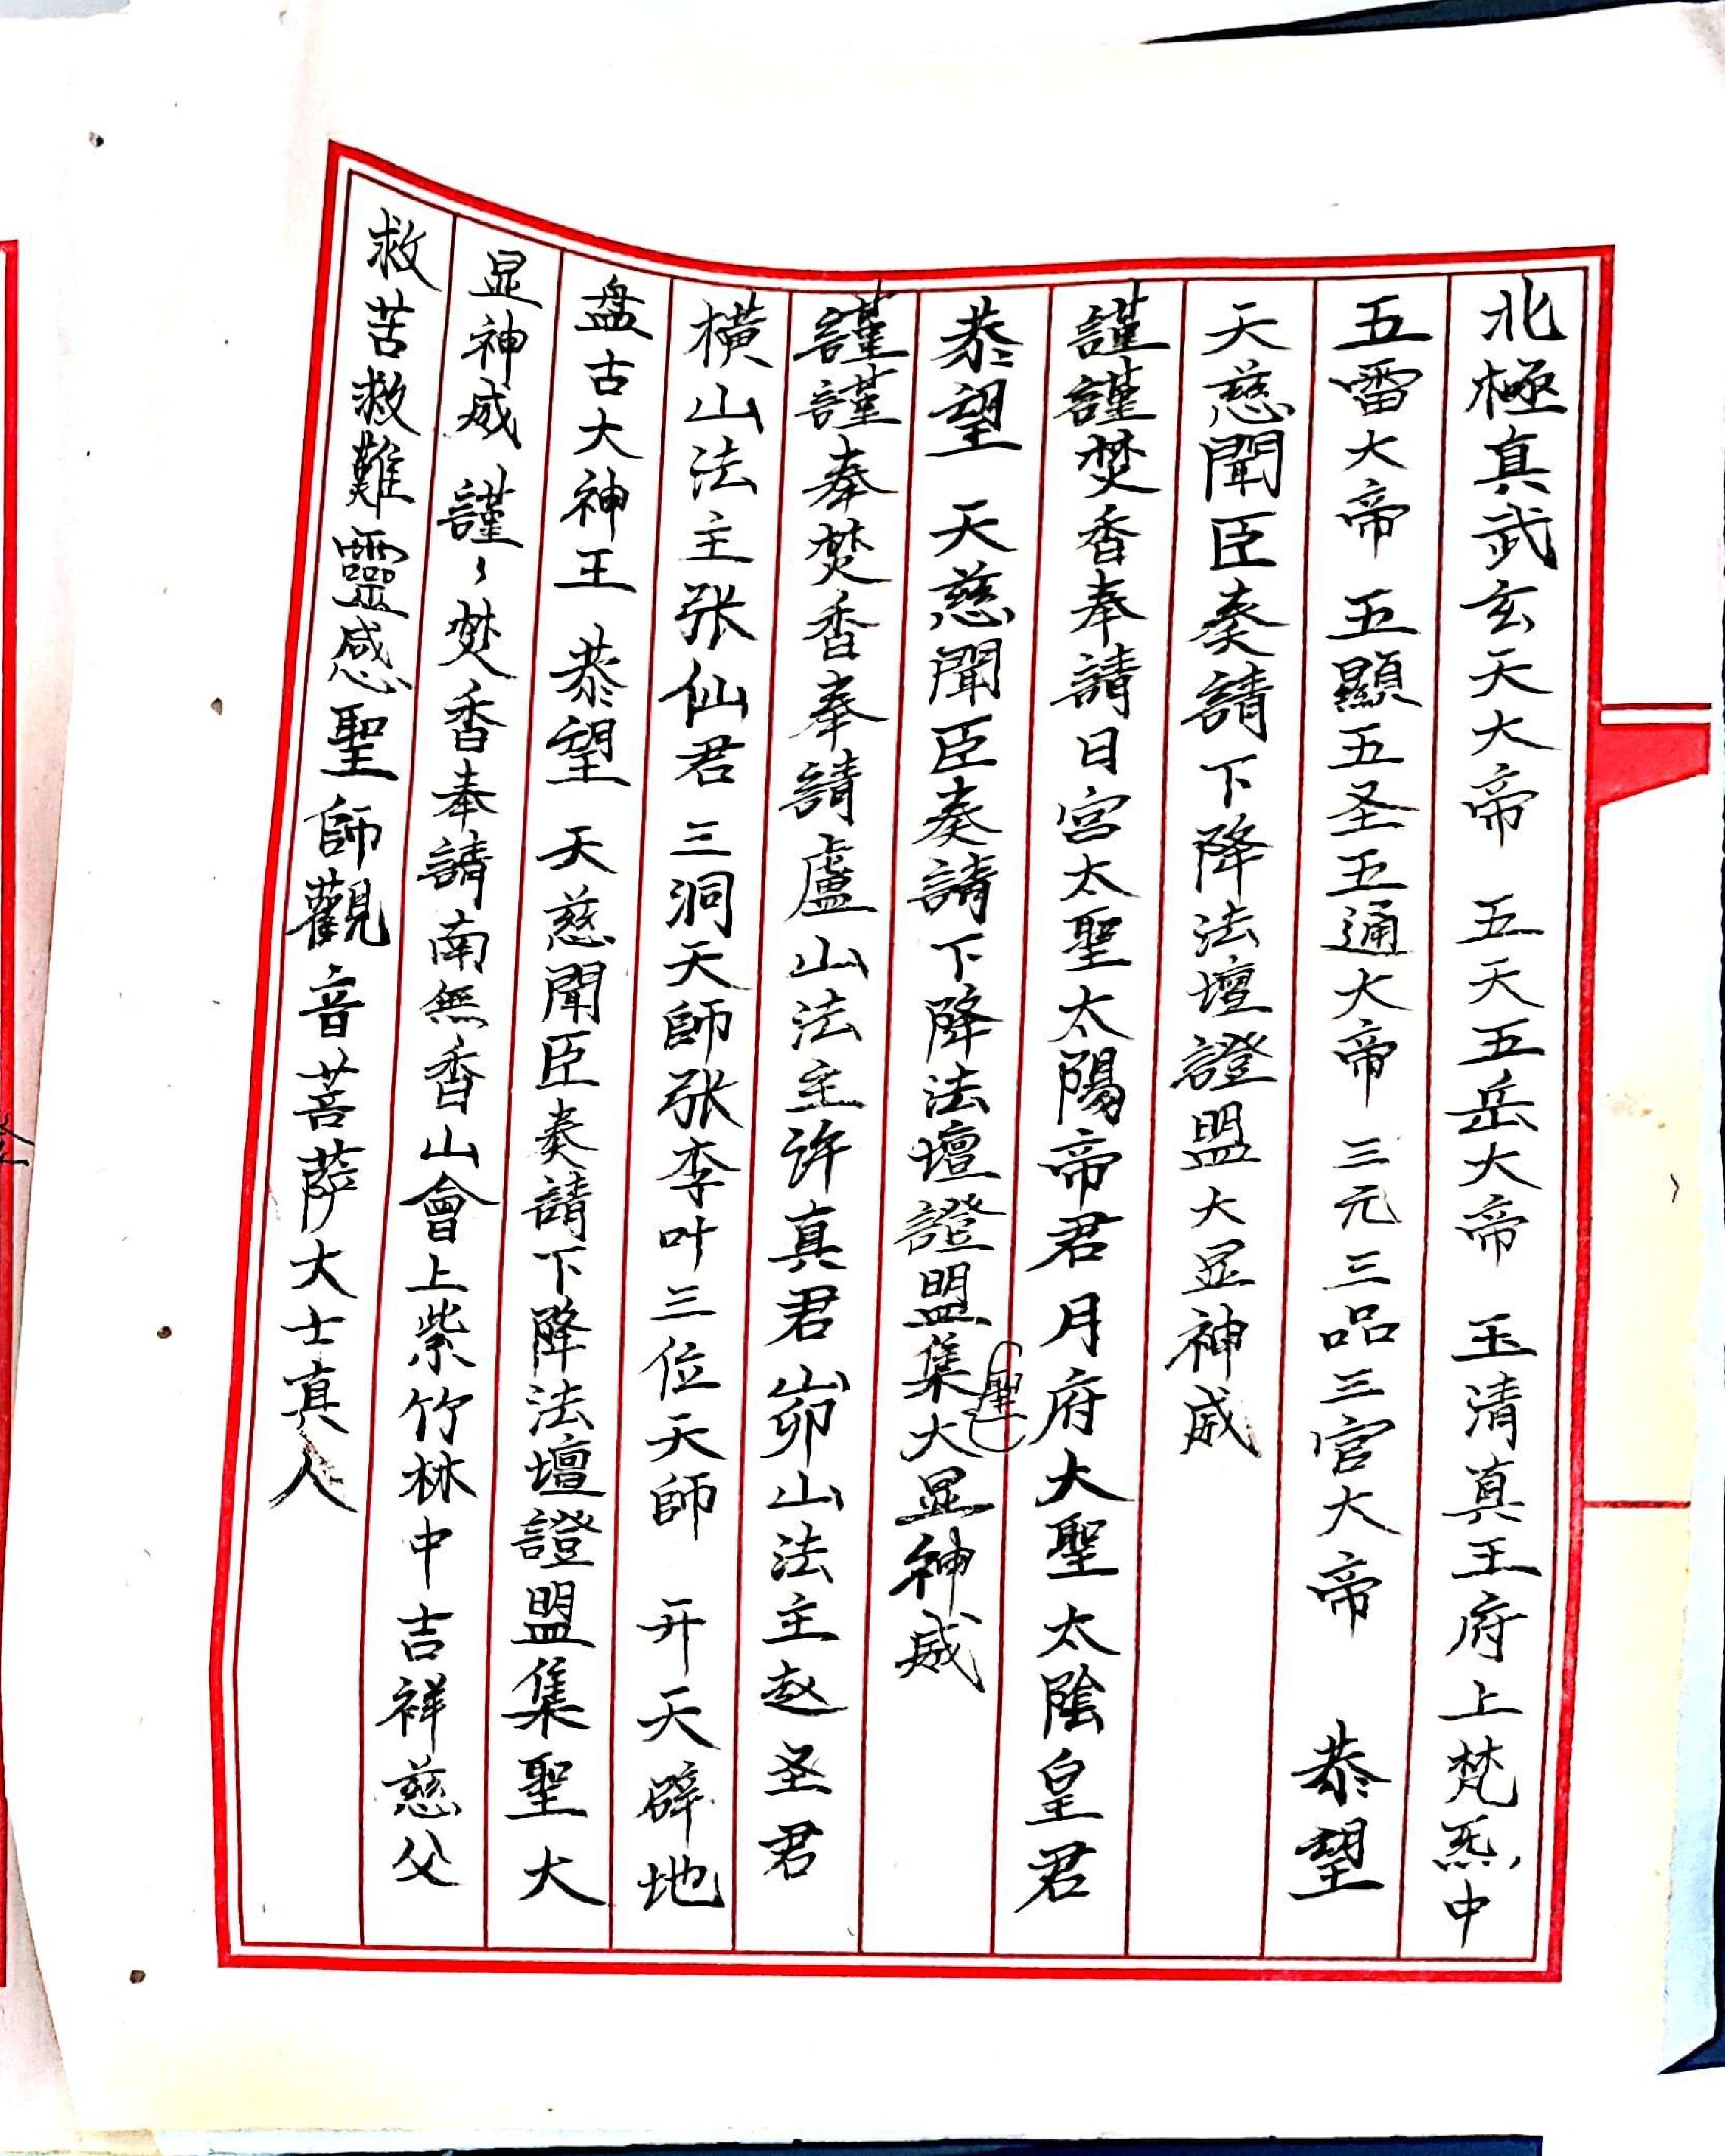 北極真武玄天大帝 五天五岳大帝 玉清真王府上梵炁中
五雷大帝 五顯五圣五通大帝 三元三品三官大帝 恭望
天慈聞臣奏請下降法壇證盟大显神威
謹謹焚香奉請日宮太聖太陽帝君月府大聖太陰皇君
恭望 天慈聞臣奏請下降法壇證盟集(聖)大显神威
謹謹奉焚香奉請盧山法主许真君峁山法主赵圣君
橫山法主张仙君三洞天師张李叶三位天師 开天辟地
盘古大神王 恭望 天慈聞臣奏請下降法壇證盟集聖大
显神威 謹〻焚香奉請南無香山會上紫竹林中吉祥慈父
救苦救難靈感聖師觀音菩萨大士真人